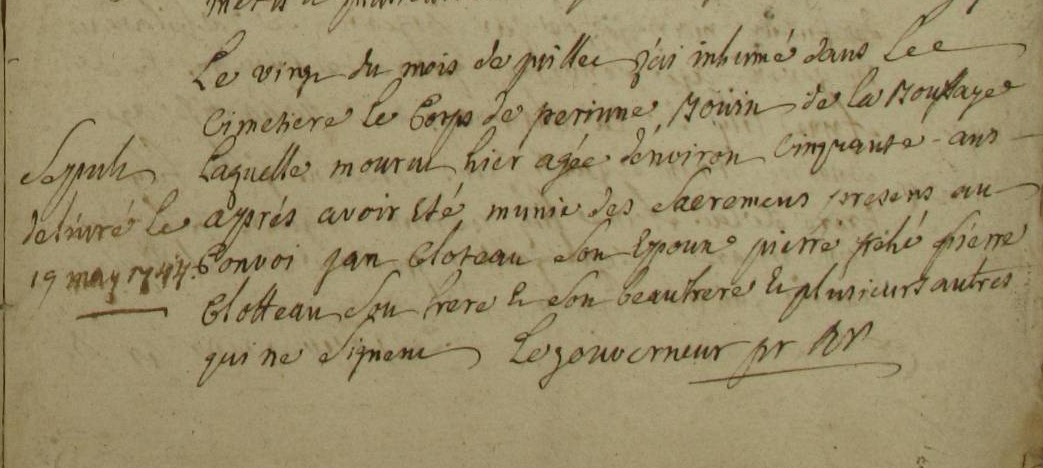 Le vingt du mois de juillet j'ai inhumé dans le
Cimetiere le Corps de perinne Boüin de la Boussaye
Sepult
Laquelle mourut hier agée d'environ Cinquante ans
delivré le
aprés avoir Eté munie des Sacremens presens au
19 may 1744
Convoi jan Cloteau Son Epoux pierre
pierre
Clotteau Son frere & Son beaufrere & plusieurs autres
qui ne Signent Legouverneur pr